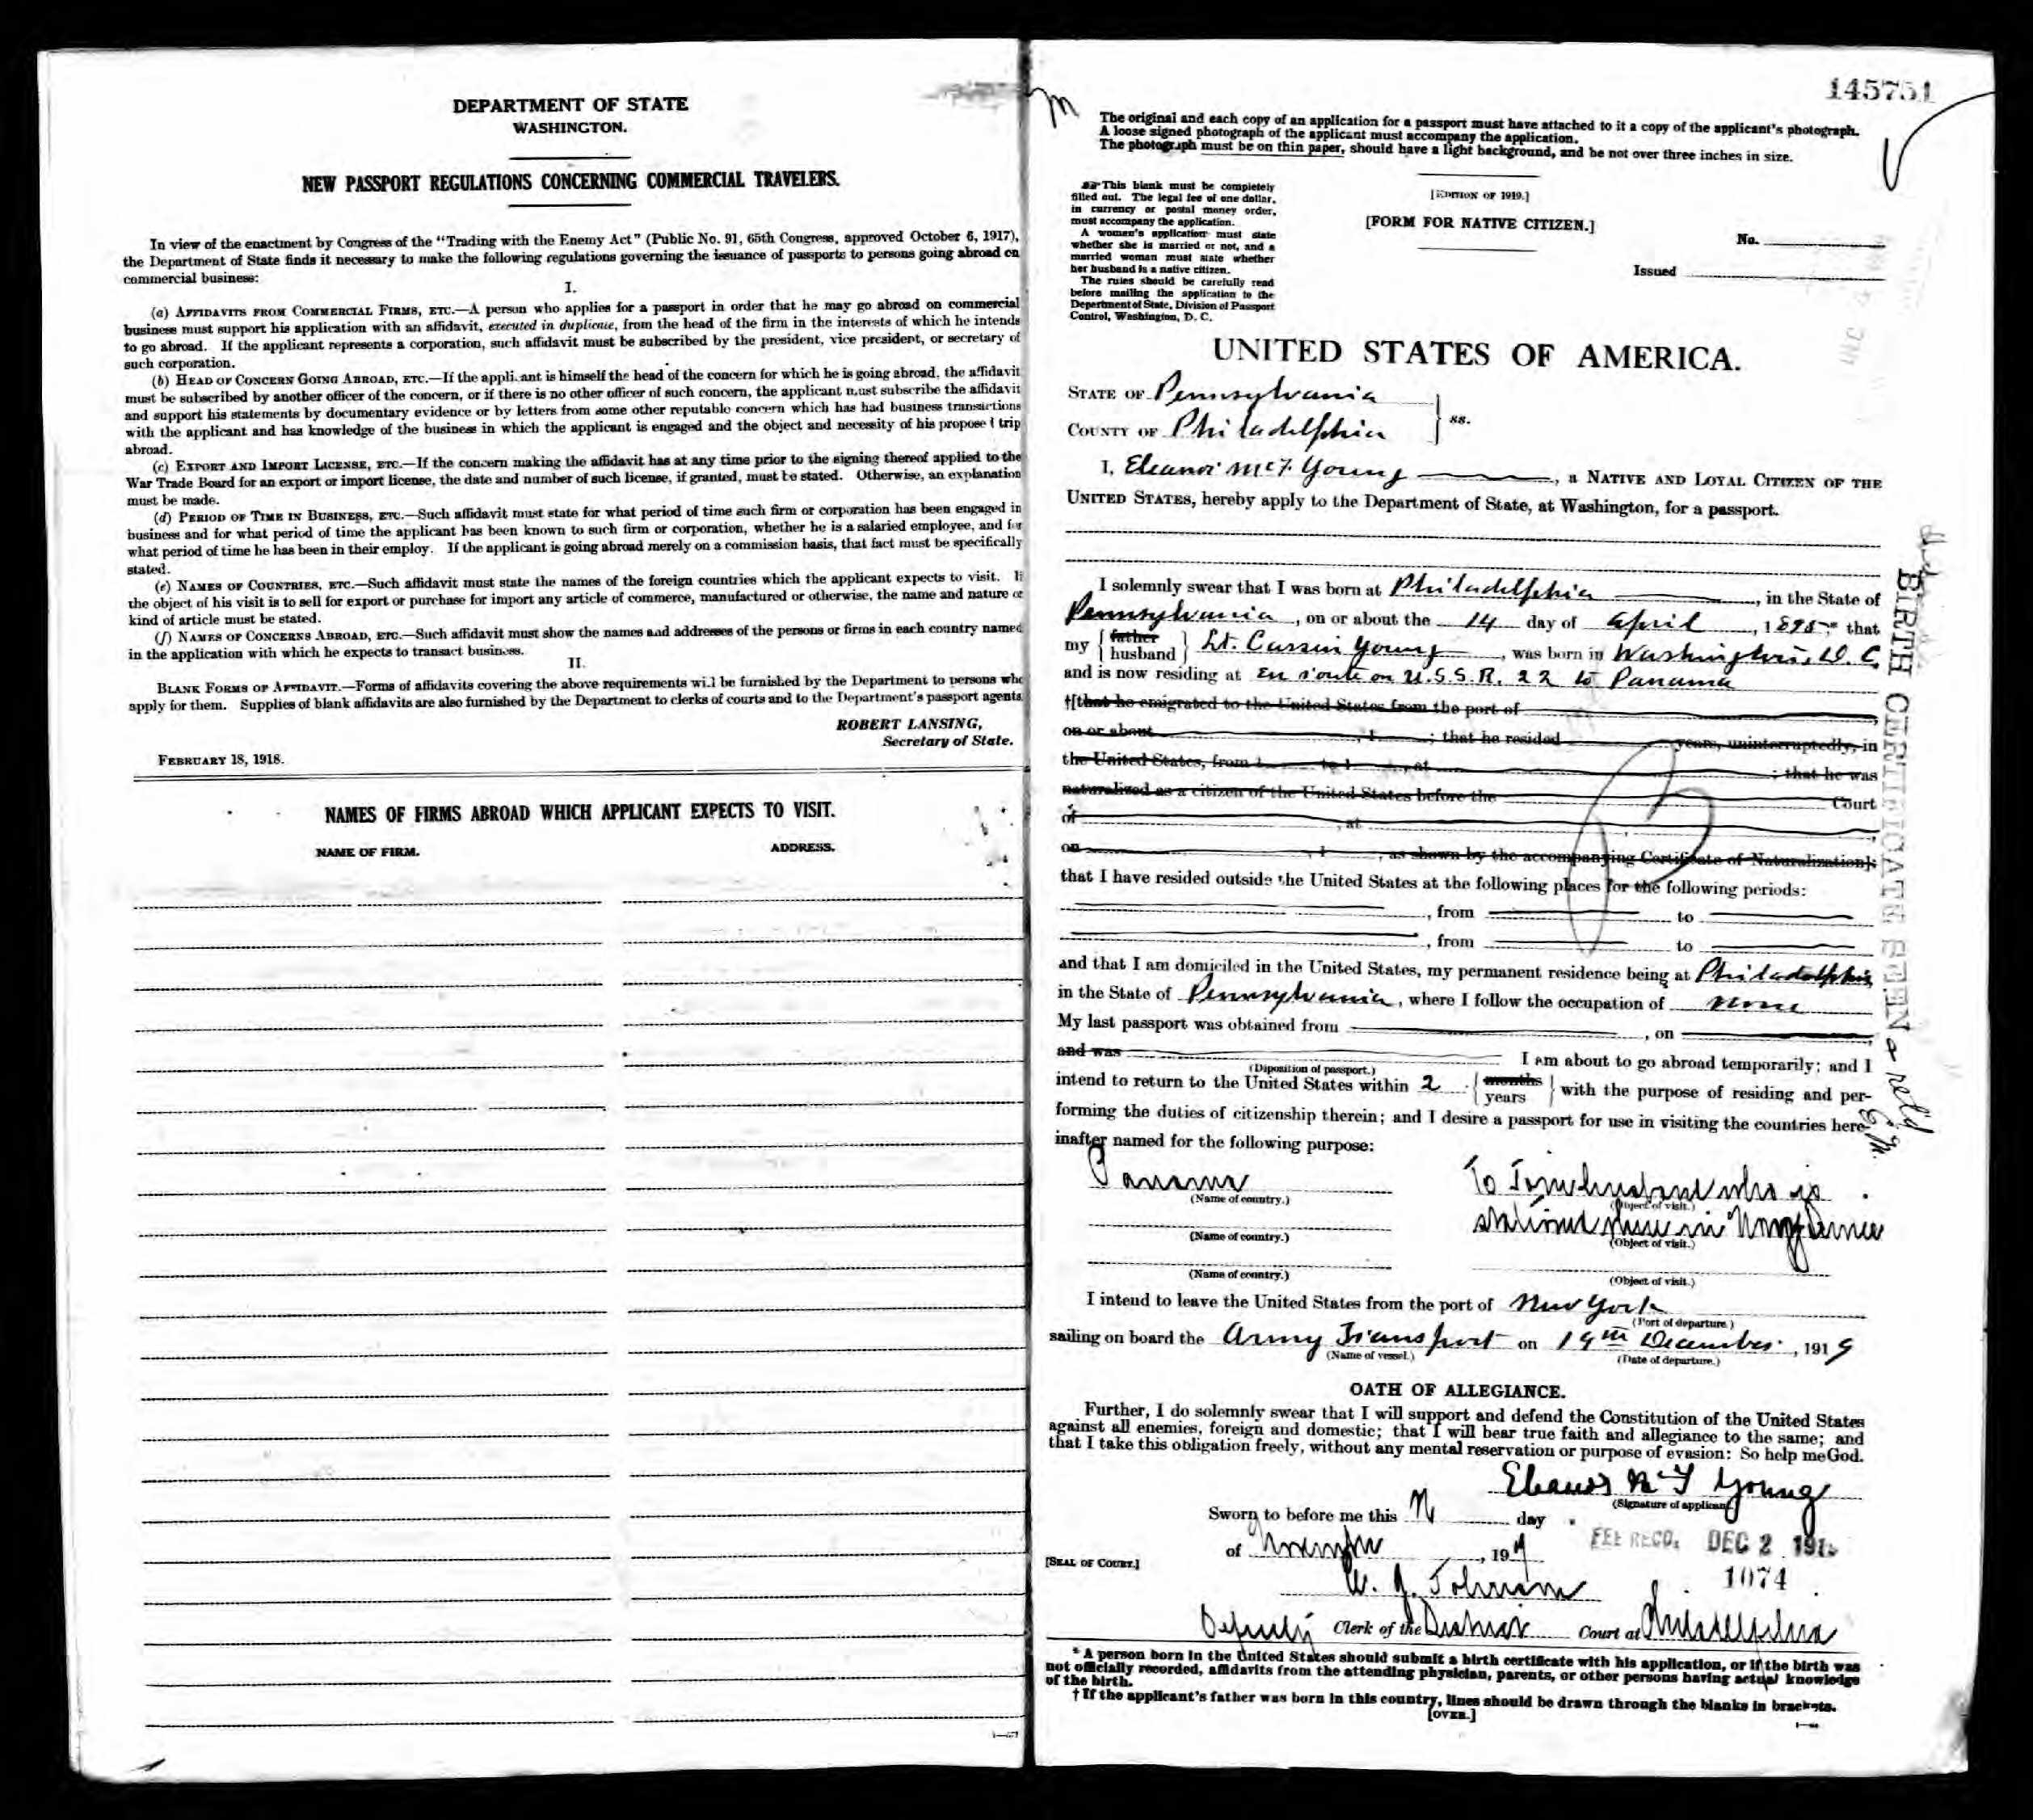 DEPARTMENT OF STATE
WASHINGTON.
NEW PASSPORT REGULATIONS CONCERNING COMMERCIAL TRAVELERS.
In view of the enactment by Congress of the "Trading with the Enemy Act" (Public No. 91, 65th Congress, approved October 6, 1917),
the Department of State finds it necessary to make the following regulations governing the issuance of passports to persons going abroad on
commercial business:
I.
(a) AFFIDAVITS FROM COMMERCIAL FIRMS, ETC.—A person who applies for a passport in order that he may go abroad on commercial
business must support his application with an affidavit, executed in duplicate, from the head of the firm in the interests of which he intends
to go abroad. If the applicant represents a corporation, such affidavit must be subscribed by the president, vice president, or secretary of
such corporation.
(b) HEAD OF CONCERN GOING ABROAD, ETC.—If the applicant is himself the head of the concern for which he is going abroad, the affidavit
must be subscribed by another officer of the concern, or if there is no other officer of such concern, the applicant must subscribe the affidavit
and support his statements by documentary evidence or by letters from some other reputable concern which has had business transactions
with the applicant and has knowledge of the business in which the applicant is engaged and the object and necessity of his proposed trip
abroad.
(c) EXPORT AND IMPORT LICENSE, ETC.—If the concern making the affidavit has at any time prior to the signing thereof applied to the
War Trade Board for an export or import license, the date and number of such license, if granted, must be stated. Otherwise, an explanation
must be made.
(d) PERIOD OF TIME IN BUSINESS, ETC.—Such affidavit must state for what period of time such firm or corporation has been engaged in
business and for what period of time the applicant has been known to such firm or corporation, whether he is a salaried employee, and for
what period of time he has been in their employ. If the applicant is going abroad merely on a commission basis, that fact must be specifically
stated.
(e) NAMES OF COUNTRIES, ETC.—Such affidavit must state the names of the foreign countries which the applicant expects to visit. If
the object of his visit is to sell for export or purchase for import any article of commerce, manufactured or otherwise, the name and nature or
kind of article must be stated.
(f) NAMES OF CONCERNS ABROAD, ETC.—Such affidavit must show the names and addresses of the persons or firms in each country named
in the application with which he expects to transact business.
II.
BLANK FORMS OF AFFIDAVIT.—Forms of affidavits covering the above requirements will be furnished by the Department to persons who
apply for them. Supplies of blank affidavits are also furnished by the Department to clerks of courts and to the Department's passport agents.
ROBERT LANSING,
Secretary of State.
FEBRUARY 18, 1918.
NAMES OF FIRMS ABROAD WHICH APPLICANT EXPECTS TO VISIT.
NAME OF FIRM. ADDRESS.
145751
The original and each copy of an application for a passport must have attached to it a copy of the applicant's photograph.
A loose signed photograph of the applicant must accompany the application.
The photograph must be on thin paper, should have a light background, and be not over three inches in size.
This blank must be completely
filled out. The legal fee of one dollar,
in currency or postal money order,
must accompany the application.
A woman's application must state
whether she is married or not, and a
married woman must state whether
her husband is a native citizen.
The rules should be carefully read
before mailing the application to the
Department of State, Division of Passport
Control, Washington, D. C.
[EDITION OF 1919.]
[FORM FOR NATIVE CITIZEN.]
No.
Issued
UNITED STATES OF AMERICA.
STATE OF Pennsylvania
COUNTY OF Philadelphia } ss.
I, Eleanor McF. Young, a NATIVE AND LOYAL CITIZEN OF THE
UNITED STATES, hereby apply to the Department of State, at Washington, for a passport.
I solemnly swear that I was born at Philadelphia, in the State of
Pennsylvania, on or about the 14 day of April, 1895* that
my {father husband} Lt. Cassin Young, was born in Washington, D. C.
and is now residing at En route on U.S.S. R. 22 to Panama
†[that he emigrated to the United States from the port of
on or about , 1 ; that he resided years, uninterruptedly, in
the United States, from 1 to 1 , at ; that he was
naturalized as a citizen of the United States before the Court
of , at ,
on , 1 , as shown by the accompanying Certificate of Naturalization];
that I have resided outside the United States at the following places for the following periods:
, from to
, from to
and that I am domiciled in the United States, my permanent residence being at Philadelphia
in the State of Pennsylvania, where I follow the occupation of none
My last passport was obtained from , on
and was I am about to go abroad temporarily; and I
(Diposition of passport.)
intend to return to the United States within 2 {months years} with the purpose of residing and per-
forming the duties of citizenship therein; and I desire a passport for use in visiting the countries here-
inafter named for the following purpose:
Panama To Join husband who is
(Name of country.) (Object of visit.)
stationed in Navy Service
(Name of country.) (Object of visit.)
(Name of country.) (Object of visit.)
I intend to leave the United States from the port of New York
(Port of departure.)
sailing on board the Army Transport on 19th December, 1919
(Name of vessel.) (Date of departure.)
OATH OF ALLEGIANCE.
Further, I do solemnly swear that I will support and defend the Constitution of the United States
against all enemies, foreign and domestic; that I will bear true faith and allegiance to the same; and
that I take this obligation freely, without any mental reservation or purpose of evasion: So help me God.
Eleanor McF Young
(Signature of applicant.)
Sworn to before me this day
FEE RECD. DEC 2
of November, 19
[SEAL OF COURT.]
1074
Deputy Clerk of the District Court at Philadelphia
* A person born in the United States should submit a birth certificate with his application, or if the birth was
not officially recorded, affidavits from the attending physician, parents, or other persons having actual knowledge
of the birth.
† If the applicant's father was born in this country, lines should be drawn through the blanks in brackets.
[OVER.]
BIRTH CERTIFICATE SEEN